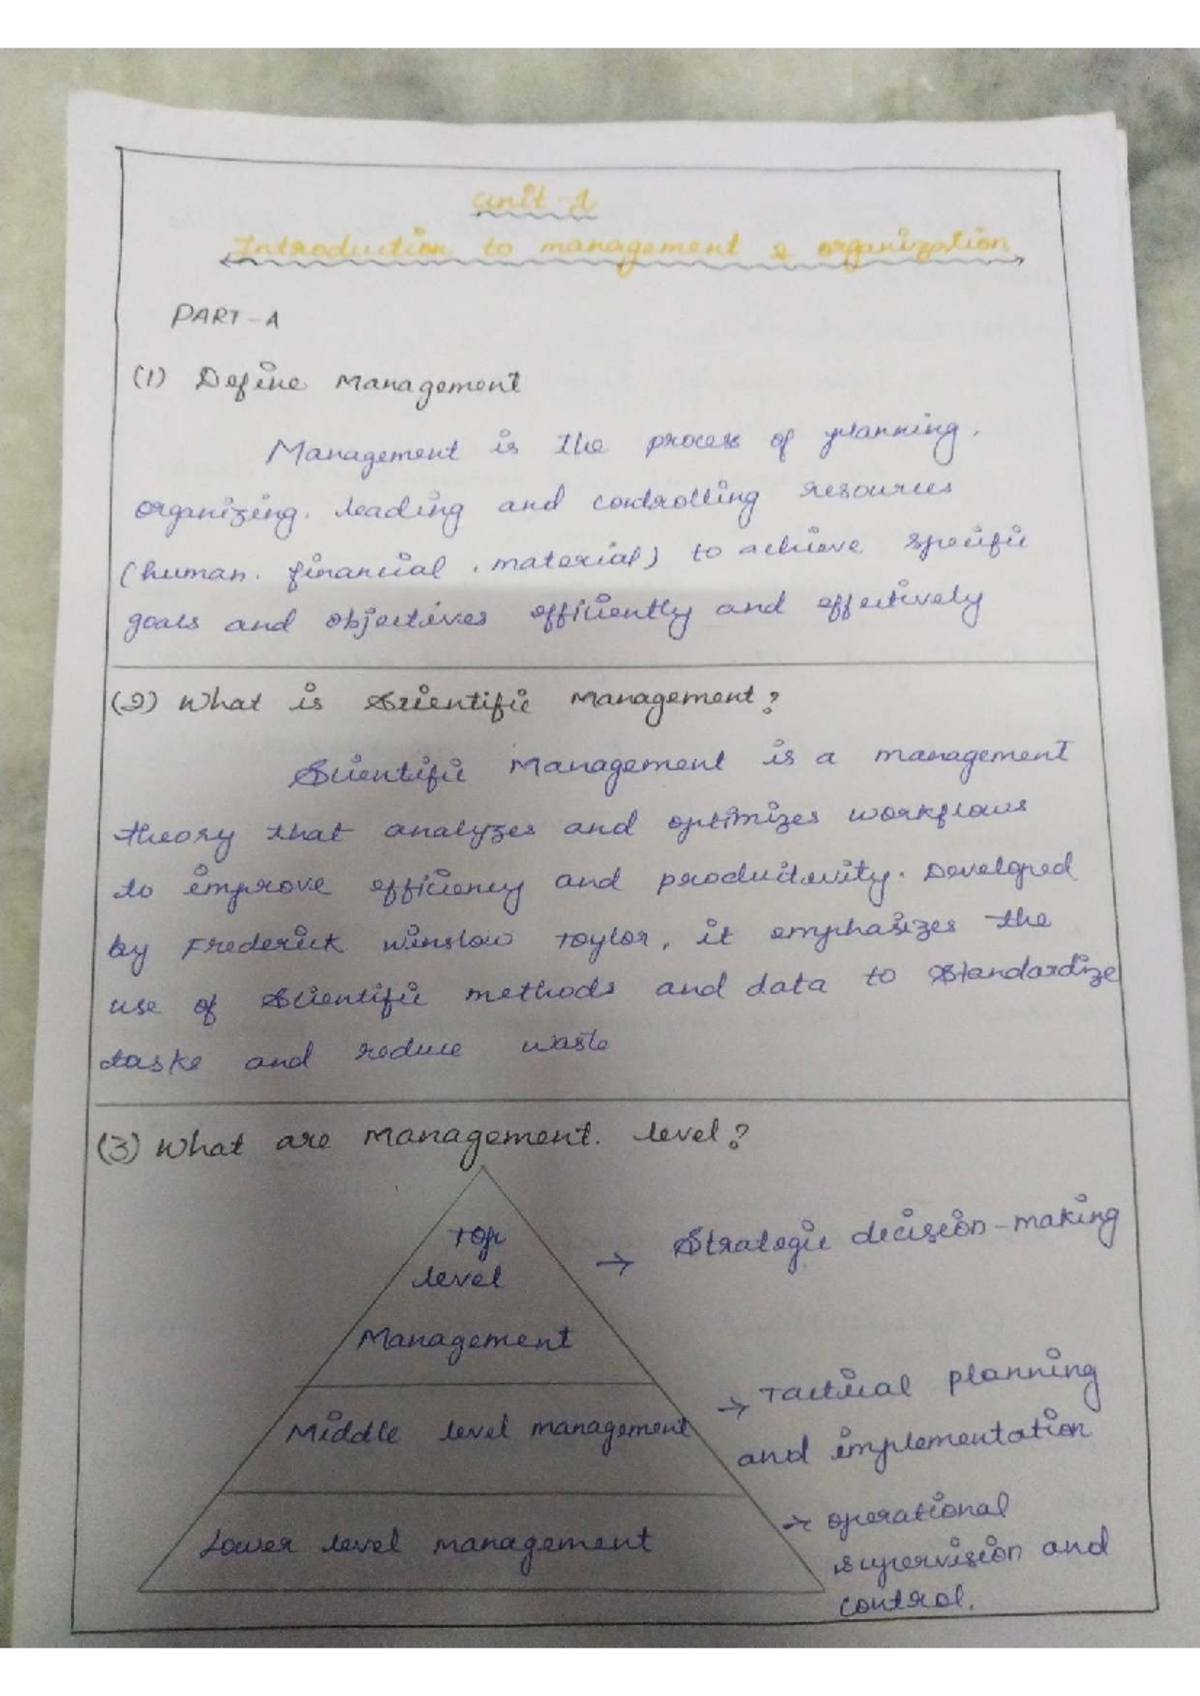 Unit-1
Introduction to management & organization
PART-A
(1) Define Management
Management is the process of planning,
organizing, leading and controlling resources
(human, financial, material) to achieve specific
goals and objectives efficiently and effectively
(2) What is Scientific Management?
Scientific Management is a management
theory that analyzes and optimizes workflows
to improve efficiency and productivity. Developed
by Frederick Winslow Taylor, it emphasizes the
use of Scientific methods and data to Standardize
tasks and reduce waste
(3) What are Management. level?
Top
level
Management
→ Strategic decision-making
Middle level management
→ Tactical planning
and implementation
Lower level management
→ operational
supervision and
control.